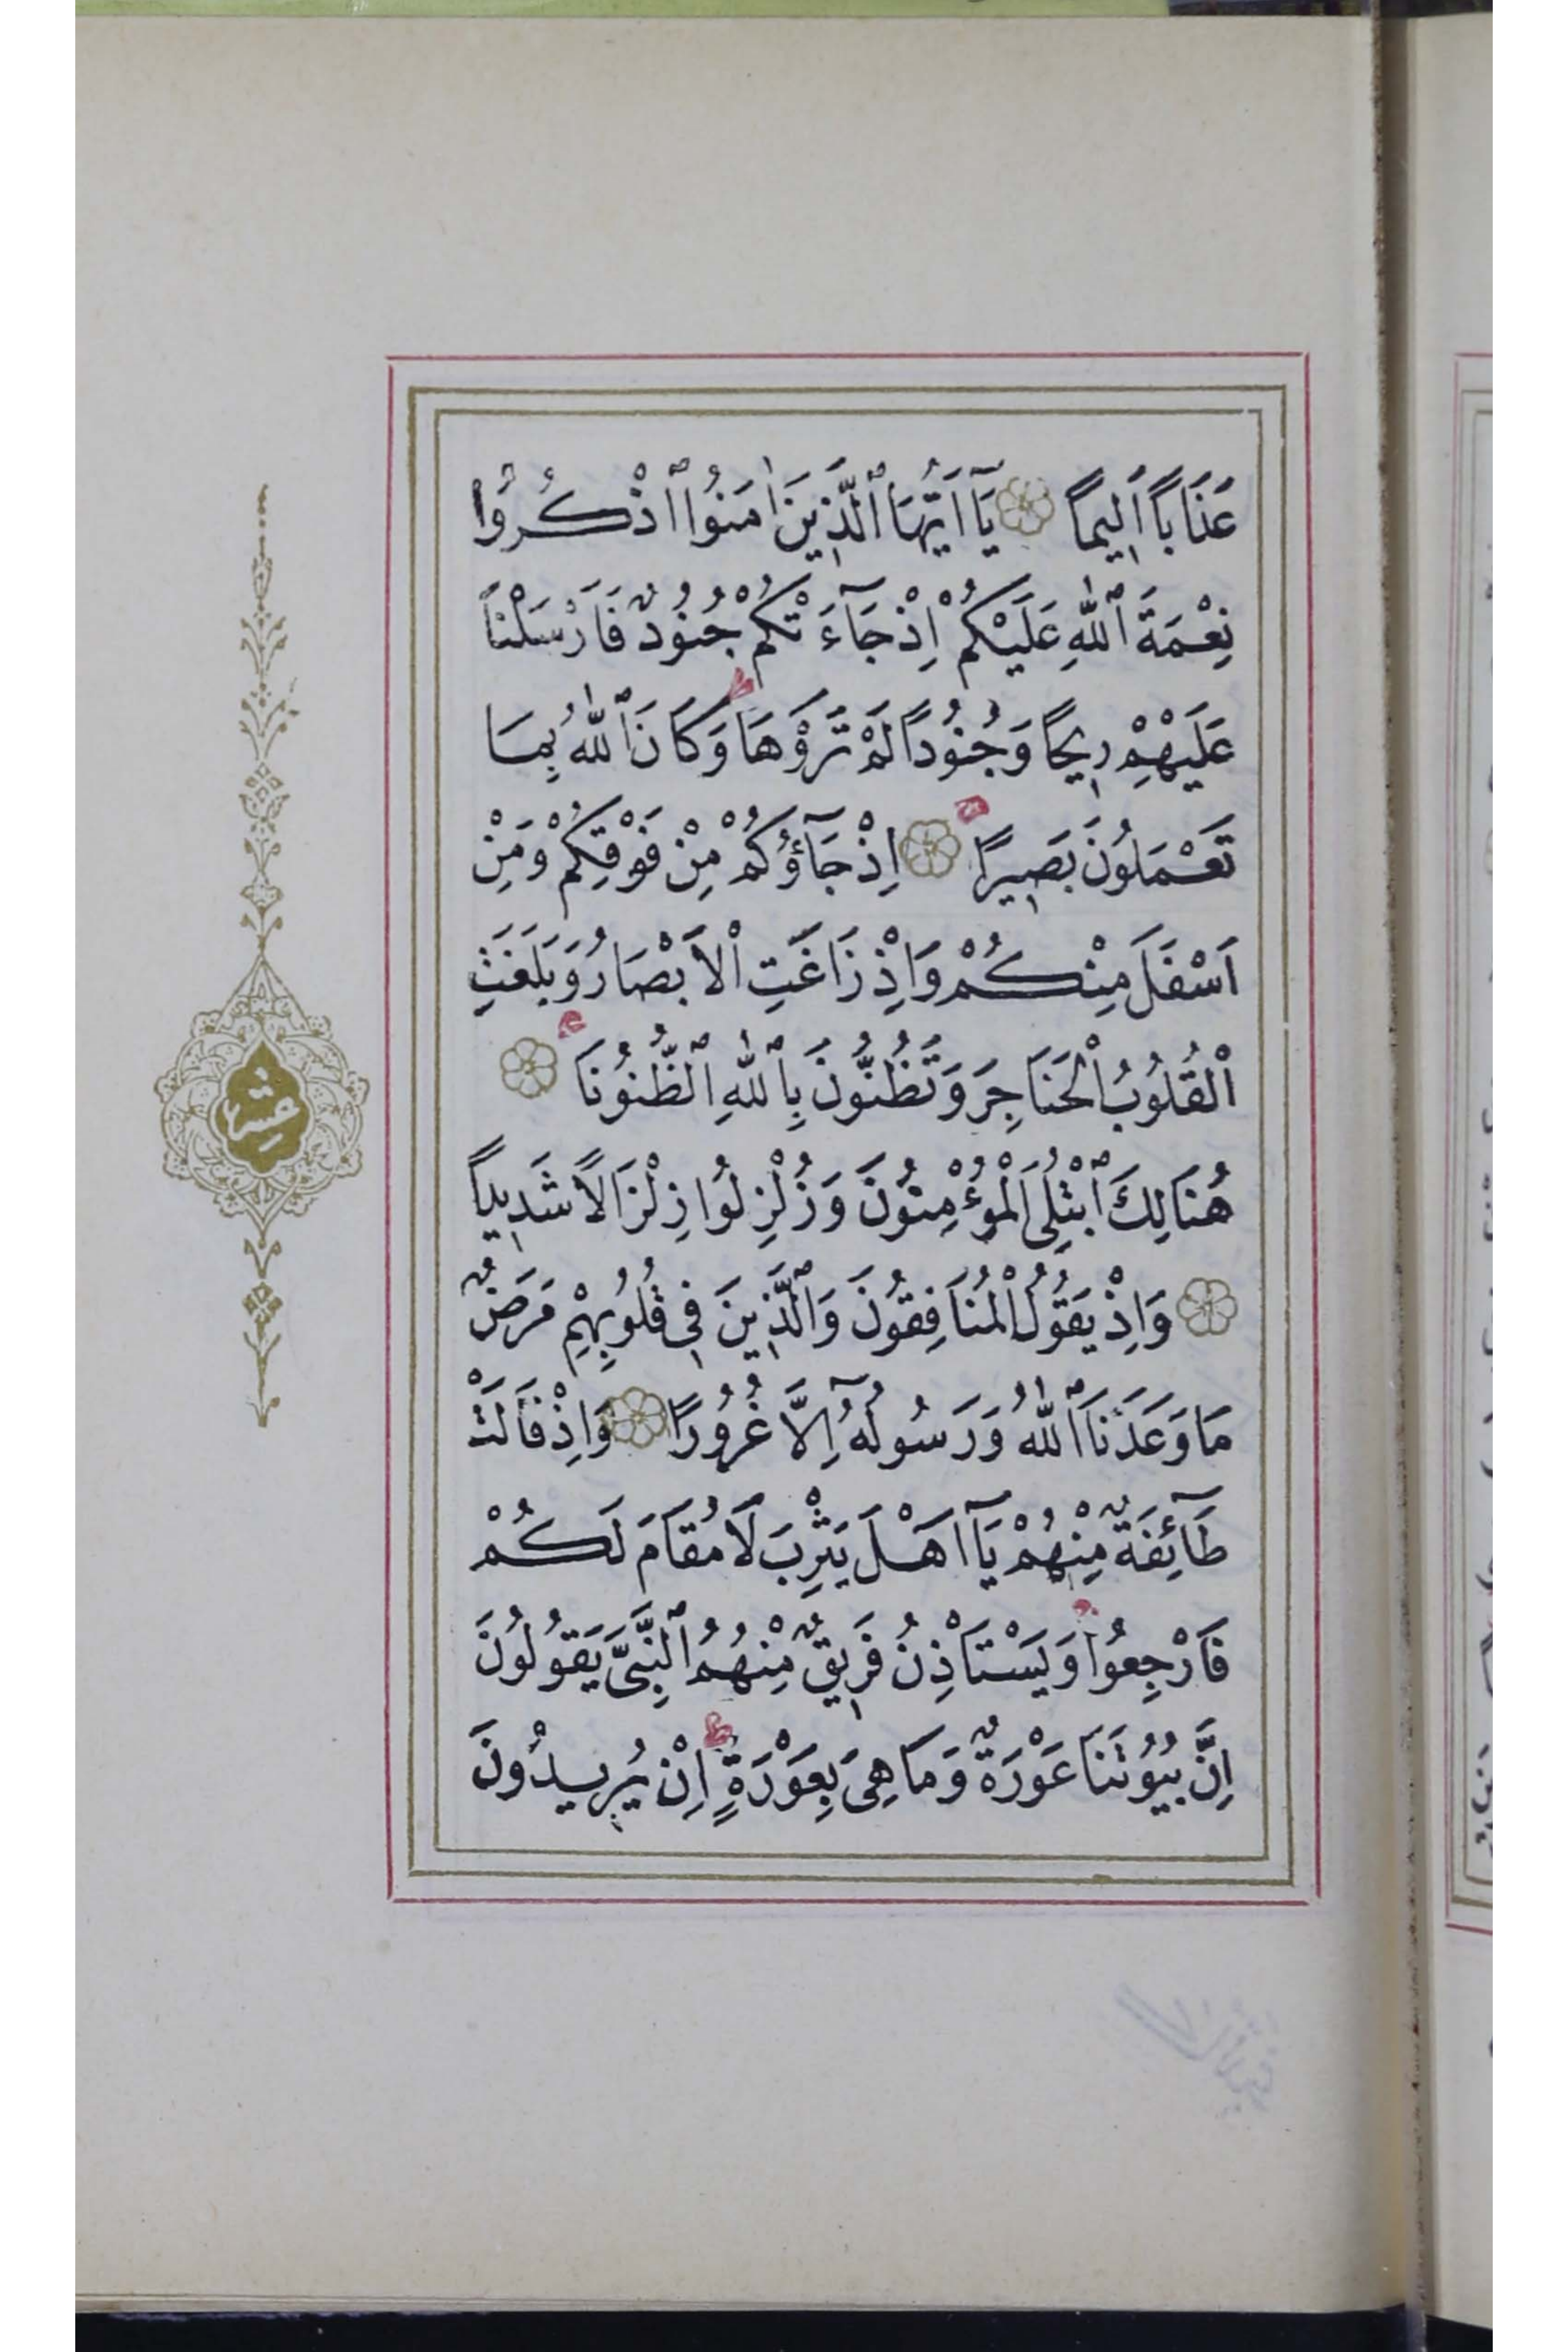 عَذَابًا اَلِيمًا يَٓا اَيُّهَا ٱلَّذِينَ اٰمَنُوا ٱذْكُرُوا
نِعْمَةَ ٱللّٰهِ عَلَيْكُمْ اِذْ جَٓاءَتْكُمْ جُنُودٌ فَاَرْسَلْنَا
عَلَيْهِمْ رِيحًا وَجُنُودًا لَمْ تَرَوْهَا وَكَانَ ٱللّٰهُ بِمَا
تَعْمَلُونَ بَصِيرًا اِذْ جَٓاؤُكُمْ مِنْ فَوْقِكُمْ وَمِنْ
اَسْفَلَ مِنْكُمْ وَاِذْ زَاغَتِ الْاَبْصَارُ وَبَلَغَتِ
الْقُلُوبُ الْحَنَاجِرَ وَتَظُنُّونَ بِٱللّٰهِ ٱلظُّنُونَا
هُنَالِكَ ٱبْتُلِىَ الْمُؤْمِنُونَ وَزُلْزِلُوا زِلْزَالًا شَدِيدًا
وَاِذْ يَقُولُ الْمُنَافِقُونَ وَٱلَّذِينَ فِى قُلُوبِهِمْ مَرَضٌ
مَا وَعَدَنَا ٱللّٰهُ وَرَسُولُهُٓ اِلَّا غُرُورًا وَاِذْ قَالَتْ
طَٓائِفَةٌ مِنْهُمْ يَٓا اَهْلَ يَثْرِبَ لَا مُقَامَ لَكُمْ
فَارْجِعُوا وَيَسْتَاْذِنُ فَرِيقٌ مِنْهُمُ ٱلنَّبِىَّ يَقُولُونَ
اِنَّ بُيُوتَنَا عَوْرَةٌ وَمَا هِىَ بِعَوْرَةٍ اِنْ يُرِيدُونَ
عشر